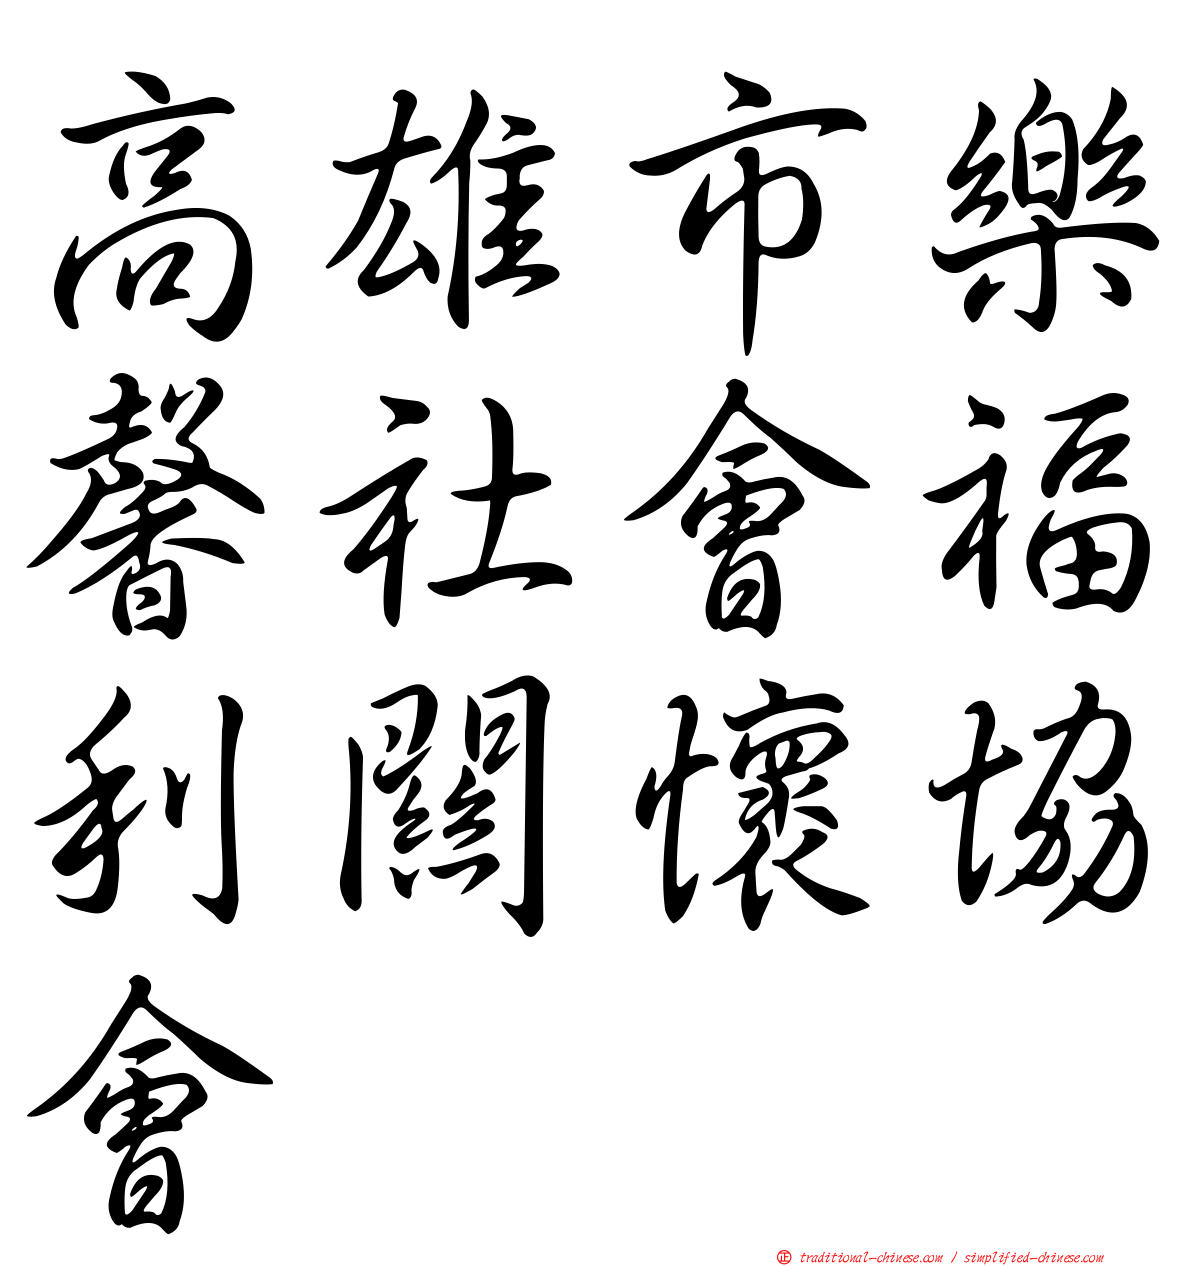 高雄市樂
馨社會福
利關懷協
會
正 traditional-chinese.com / simplified-chinese.com